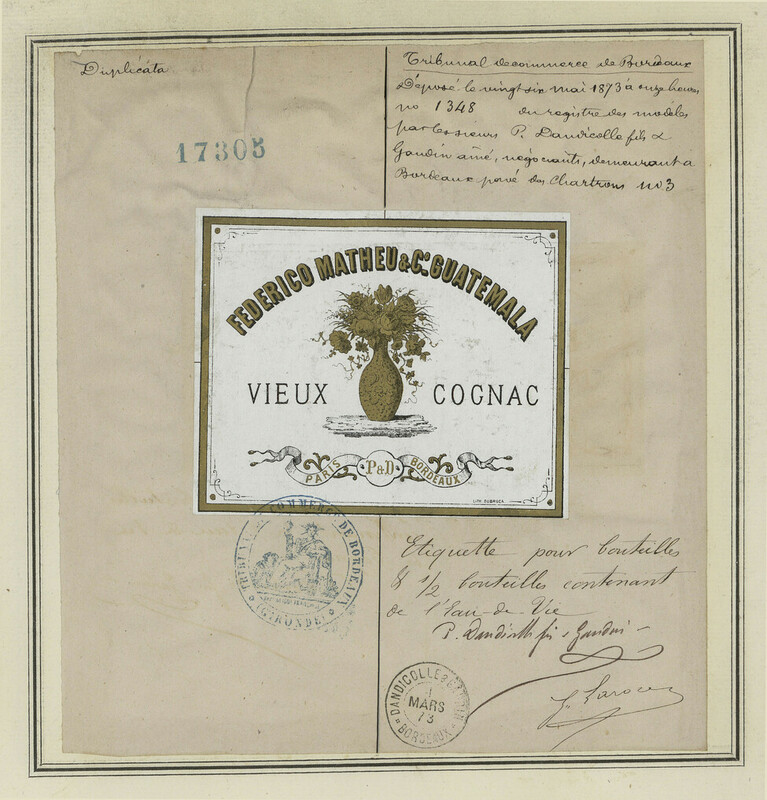 Duplicata
17305
Tribunal de commerce de Bordeaux
Déposé le vingt six mai 1873 à onze heures
no 1348 du registre des modèles
par les sieurs P. Dandicolle fils &
Gaudin ainé, négociants, demeurant à
Bordeaux pavé des Chartrons no 3
FEDERICO MATHEU & Ca. GUATEMALA
VIEUX COGNAC
PARIS P&D BORDEAUX
LITH.
TRIBUNAL DE COMMERCE DE BORDEAUX
(GIRONDE)
Etiquette pour bouteilles
& 1/2 bouteilles contenant
de l'Eau-de-Vie
P. Dandicolle fils & Gaudin
DANDICOLLE & GAUDIN
1
MARS
73
BORDEAUX